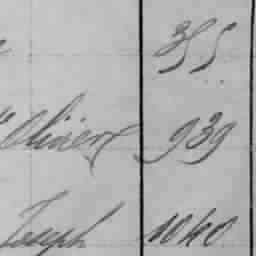 355
" Olivier 939
Joseph 1040